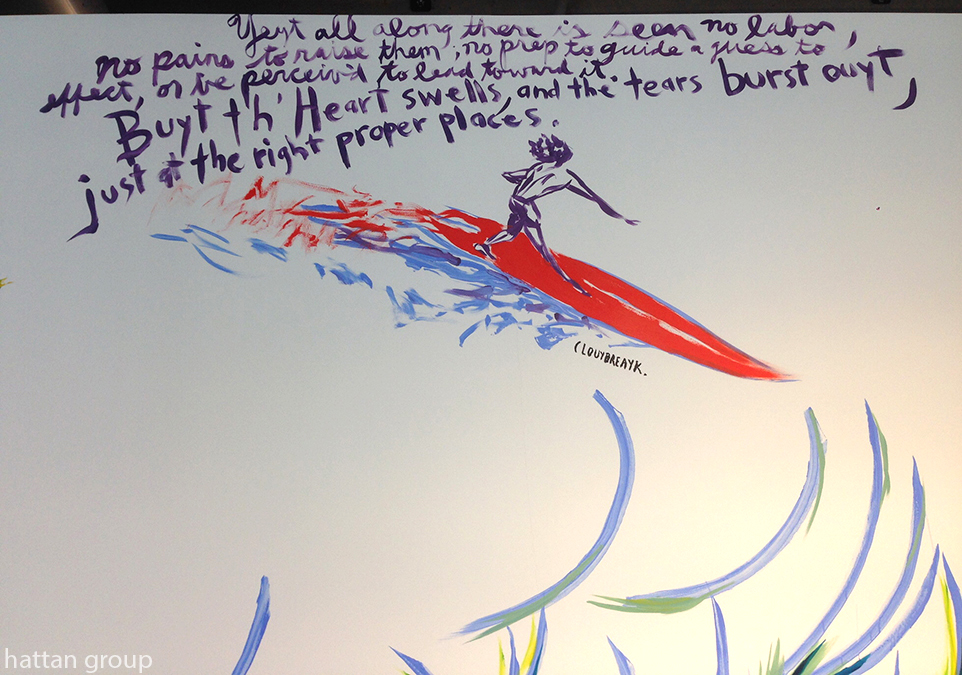 Yeyt all along there is seen no labor,
no pains to raise them; no prep to guide a guess to
effect, or be perceiv'd to lead toward it.
Buyt th' Heart swells, and the tears burst ouyt,
just at the right proper places.
CLOUYBREAYK.
hattan group